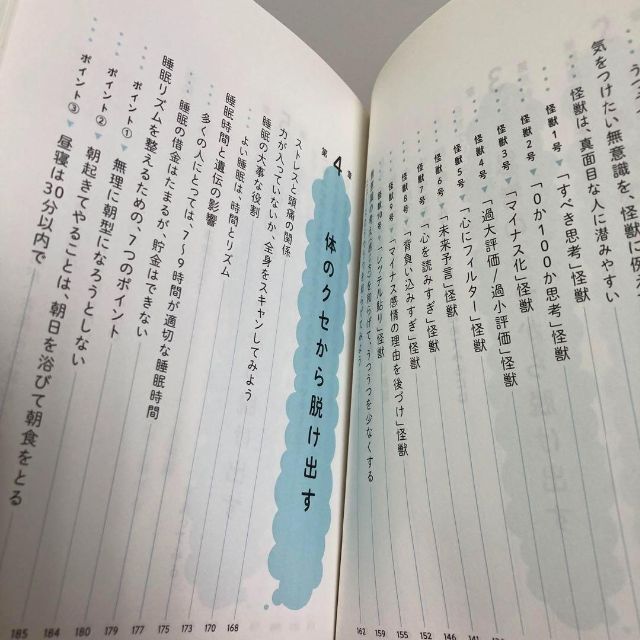 気をつけたい無意識を、怪獣に例える
怪獣は、真面目な人に潜みやすい
怪獣1号 ▼「すべき思考」怪獣
怪獣2号 ▼「0か100か思考」怪獣
怪獣3号 ▼「マイナス化」怪獣
怪獣4号 ▼「過大評価/過小評価」怪獣
怪獣5号 ▼「心にフィルター」怪獣
怪獣6号 ▼「未来予言」怪獣
怪獣7号 ▼「心を読みすぎ」怪獣
怪獣8号 ▼「背負い込みすぎ」怪獣
▼「マイナス感情の理由を後づけ」怪獣
「レッテル貼り」怪獣
を和らげて、うつうつを少なくする
162
159
155
152
第4章
体のクセから脱け出す
ストレスと頭痛の関係
力が入っていないか、全身をスキャンしてみよう
睡眠の大事な役割
よい睡眠は、時間とリズム
168
睡眠時間と遺伝の影響
170
多くの人にとっては、7〜9時間が適切な睡眠時間
173
睡眠の借金はたまるが、貯金はできない
175
睡眠リズムを整えるための、7つのポイント
177
ポイント① ▼ 無理に朝型になろうとしない
179
ポイント② ▼ 朝起きてやることは、朝日を浴びて朝食をとる
180
ポイント③ ▼ 昼寝は30分以内で
184
185